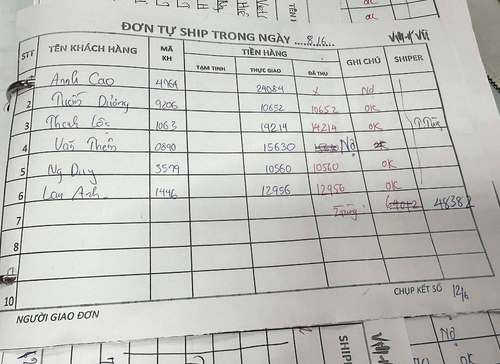 ĐƠN TỰ SHIP TRONG NGÀY 8/6
STT TÊN KHÁCH HÀNG MÃ KH TIỀN HÀNG GHI CHÚ SHIPER
TẠM TÍNH THỰC GIAO ĐÃ THU
1 Anh Cao 4764 24084 x Nợ
2 Tuấn Dương 9206 10652 10652 OK
3 Thanh Lộc 1063 14214 14214 OK
4 Văn Thêm 0890 15630 Nợ
5 Ng Duy 3579 10560 10560 OK
6 Lan Anh 1446 12956 12956 OK
7 48382
8
10
NGƯỜI GIAO ĐƠN CHỤP KẾT SỔ 12/6